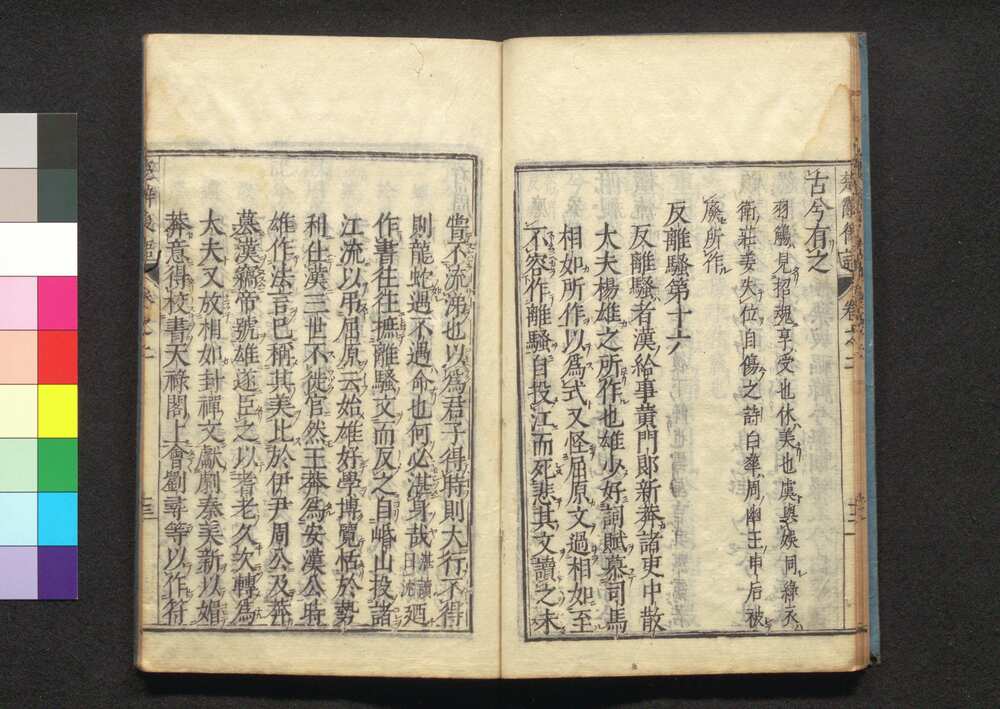 古今有之
羽觴見招魂享受也休美也虞與娛同綠衣
衛莊姜失位自傷之詩白華周幽王申后被
廢所作
反離騷第十六
反離騷者漢給事黃門郎新莽諸吏中散
大夫楊雄之所作也雄少好詞賦慕司馬
相如所作以爲式又怪屈原文過相如至
不容作離騷自投江而死悲其文讀之未
嘗不流涕也以爲君子得時則大行不得
則龍蛇遇不遇命也何必湛身哉湛讀曰沈廼
作書往往摭離騷文而反之自崏山投諸
江流以弔屈原云始雄好學博覽恬於勢
利仕漢三世不徙官然王莽爲安漢公時
雄作法言已稱其美比於伊尹周公及莽
篡漢竊帝號雄遂臣之以耆老久次轉爲
大夫又放相如封禪文獻劇秦美新以媚
莽意得校書天祿閣上會劉尋等以作符